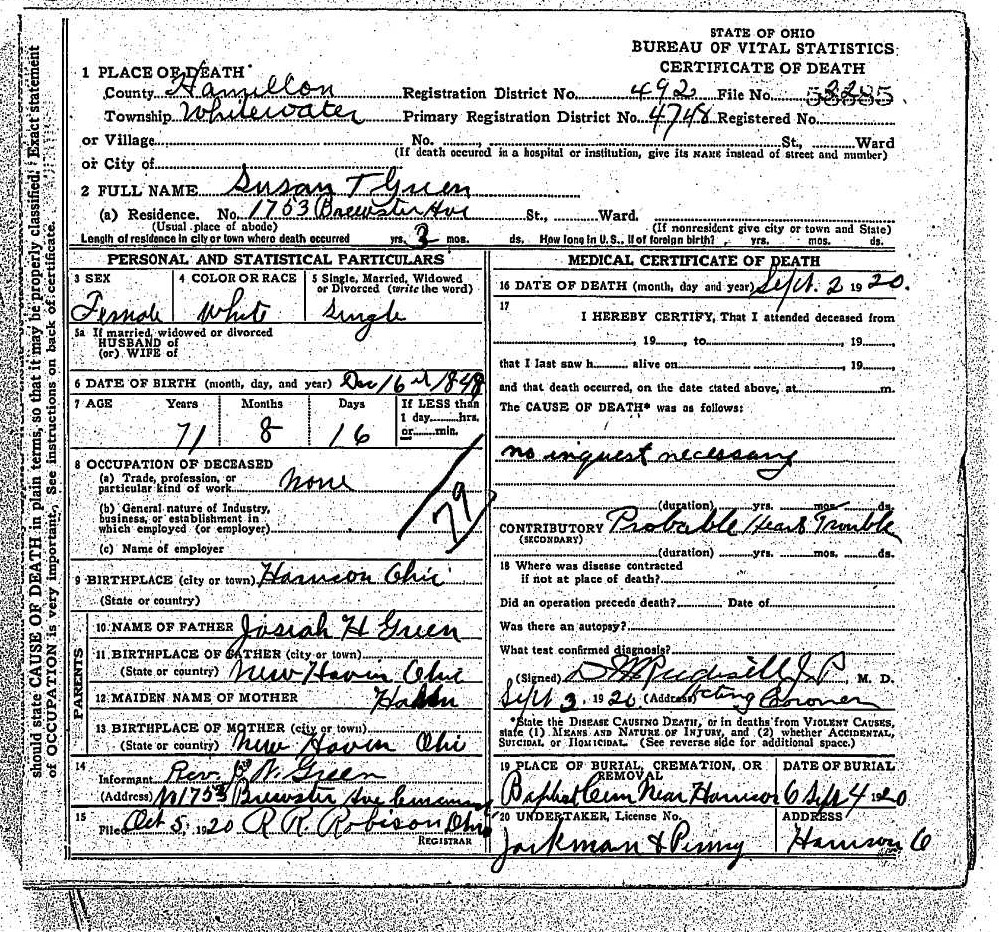 STATE OF OHIO
BUREAU OF VITAL STATISTICS
CERTIFICATE OF DEATH
1 PLACE OF DEATH
County Hamilton Registration District No. 492 File No.
Township Whitewater Primary Registration District No. 4748 Registered No.
or Village No. St., Ward
(If death occured in a hospital or institution, give its NAME instead of street and number)
or City of
2 FULL NAME Susan T Green
(a) Residence. No. 1753 Brewster Ave St., Ward.
(Usual place of abode) (If nonresident give city or town and State)
Length of residence in city or town where death occurred yrs. 3 mos. ds. How long in U.S., if of foreign birth? yrs. mos. ds.
PERSONAL AND STATISTICAL PARTICULARS
3 SEX 4 COLOR OR RACE 5 Single, Married, Widowed
or Divorced (write the word)
Female White Single
5a If married, widowed or divorced
HUSBAND of
(or) WIFE of
6 DATE OF BIRTH (month, day, and year) Dec 16 1848
7 AGE Years Months Days If LESS than
1 day hrs.
or min.
71 8 16
8 OCCUPATION OF DECEASED
(a) Trade, profession, or
particular kind of work none
(b) General nature of Industry,
business, or establishment in
which employed (or employer)
(c) Name of employer
79
9 BIRTHPLACE (city or town) Harrison Ohio
(State or country)
PARENTS
10 NAME OF FATHER Josiah H Green
11 BIRTHPLACE OF FATHER (city or town)
(State or country) New Haven Ohio
12 MAIDEN NAME OF MOTHER
13 BIRTHPLACE OF MOTHER (city or town)
(State or country) New Haven Ohio
14
Informant Rev. Green
(Address) No 1753 Brewster Ave Cincinnati
15
Filed Oct 5, 1920 R R Robison Ohio
REGISTRAR
MEDICAL CERTIFICATE OF DEATH
16 DATE OF DEATH (month, day and year) Sept. 2 1920.
17
I HEREBY CERTIFY, That I attended deceased from
, 19 , to , 19 ,
that I last saw h alive on , 19 ,
and that death occurred, on the date stated above, at m.
The CAUSE OF DEATH* was as follows:
no inquest necessary
(duration) yrs. mos. ds.
CONTRIBUTORY Probable Heart Trouble
(SECONDARY)
(duration) yrs. mos. ds.
18 Where was disease contracted
if not at place of death?
Did an operation precede death? Date of
Was there an autopsy?
What test confirmed diagnosis?
(Signed) J P M. D.
Sept 3, 1920 (Address) Acting Coroner
*State the DISEASE CAUSING DEATH, or in deaths from VIOLENT CAUSES,
state (1) MEANS AND NATURE OF INJURY, and (2) whether ACCIDENTAL,
SUICIDAL or HOMICIDAL. (See reverse side for additional space.)
19 PLACE OF BURIAL, CREMATION, OR REMOVAL DATE OF BURIAL
Baptist Cem Near Harrison O Sept 4 1920
20 UNDERTAKER, License No. ADDRESS
Jackman & Penny Harrison O
should state CAUSE OF DEATH in plain terms, so that it may be properly classified. Exact statement
of OCCUPATION is very important. See instructions on back of certificate.